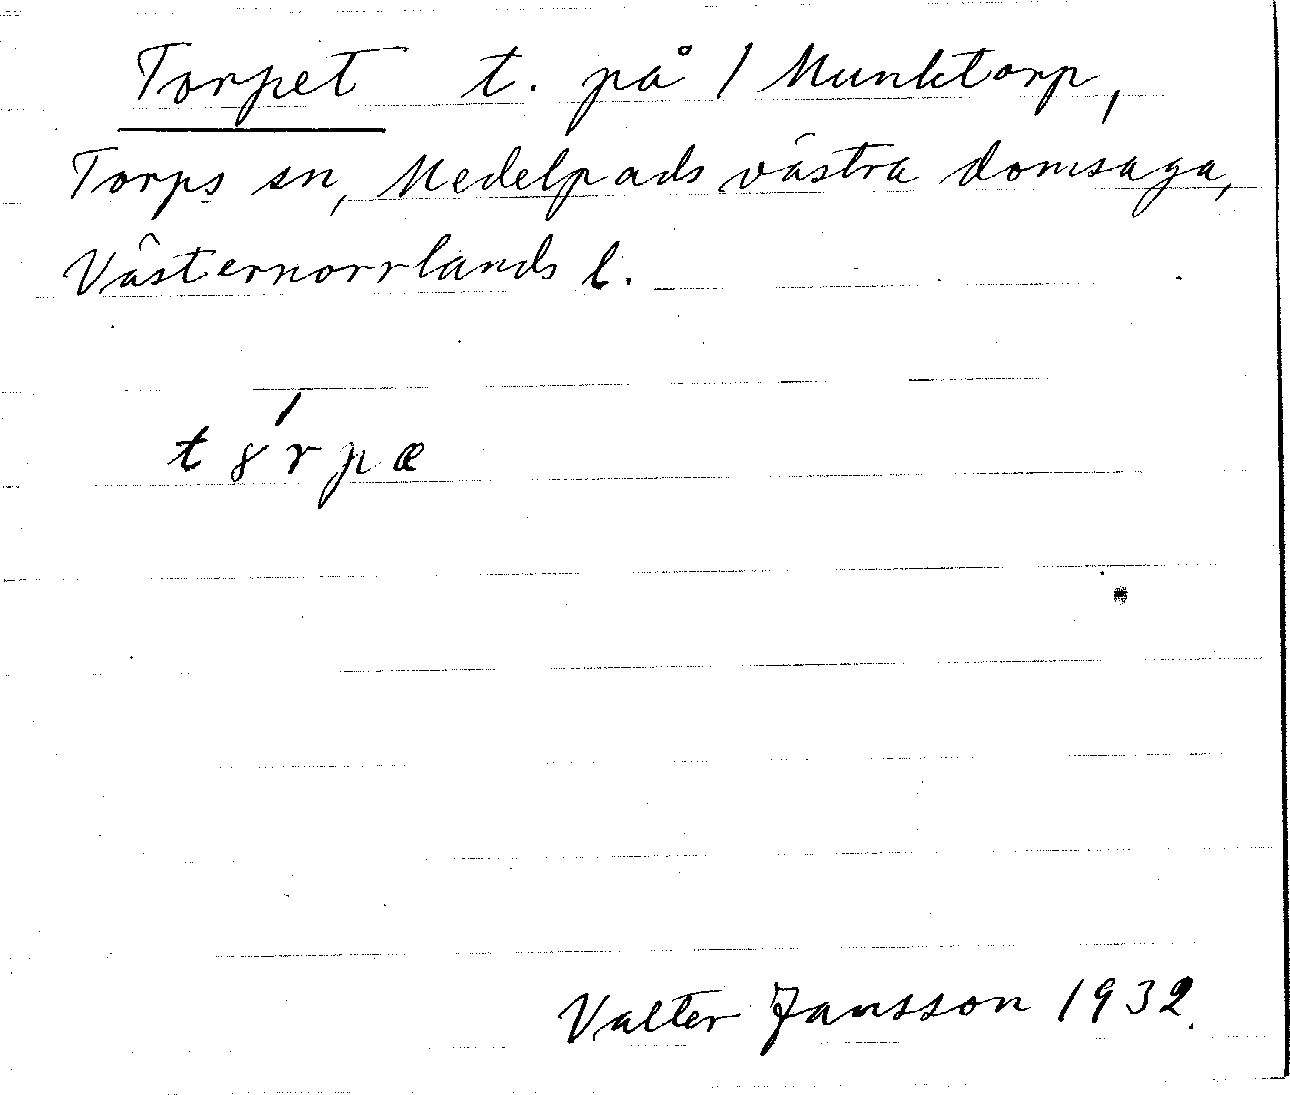 Torpet t. på 1 Munktorp,
Torps sn, Medelpads västra domsaga,
Västernorrlands l.
t󠀠ȣ́rpæ
Valter Jansson 1932.